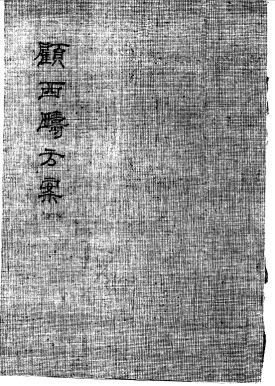 顧西疇方案